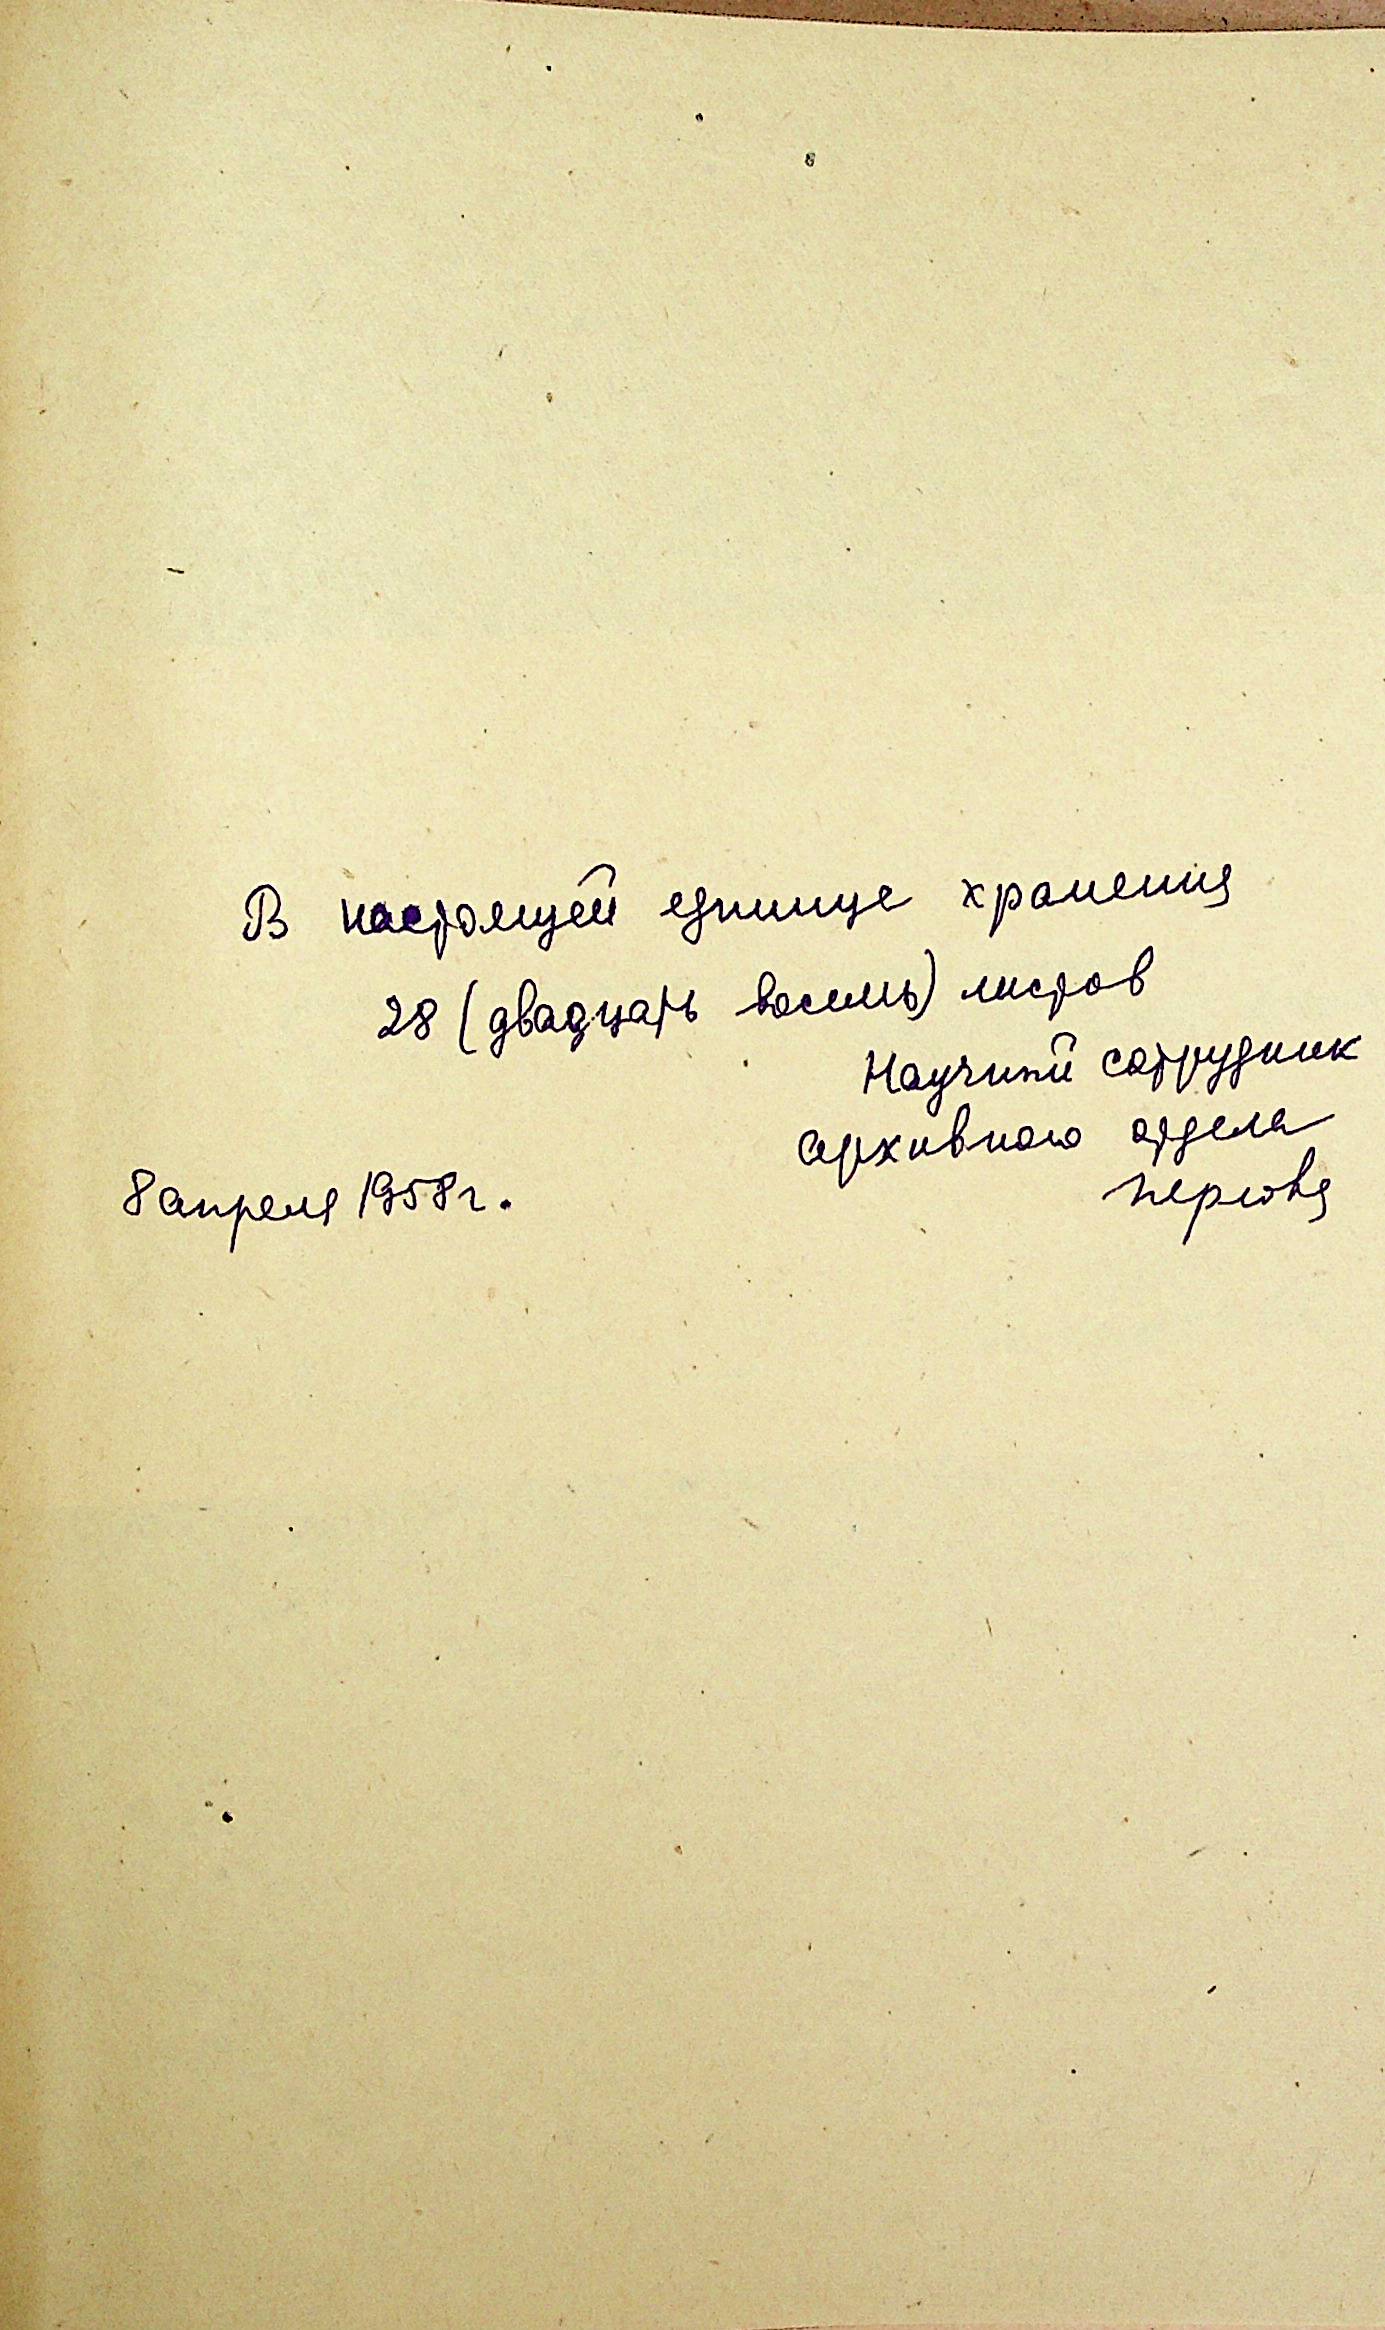 В настоящей единице хранения
28 (двадцать восемь) листов
Научный сотрудник
архивного отдела
8 апреля 1958 г.